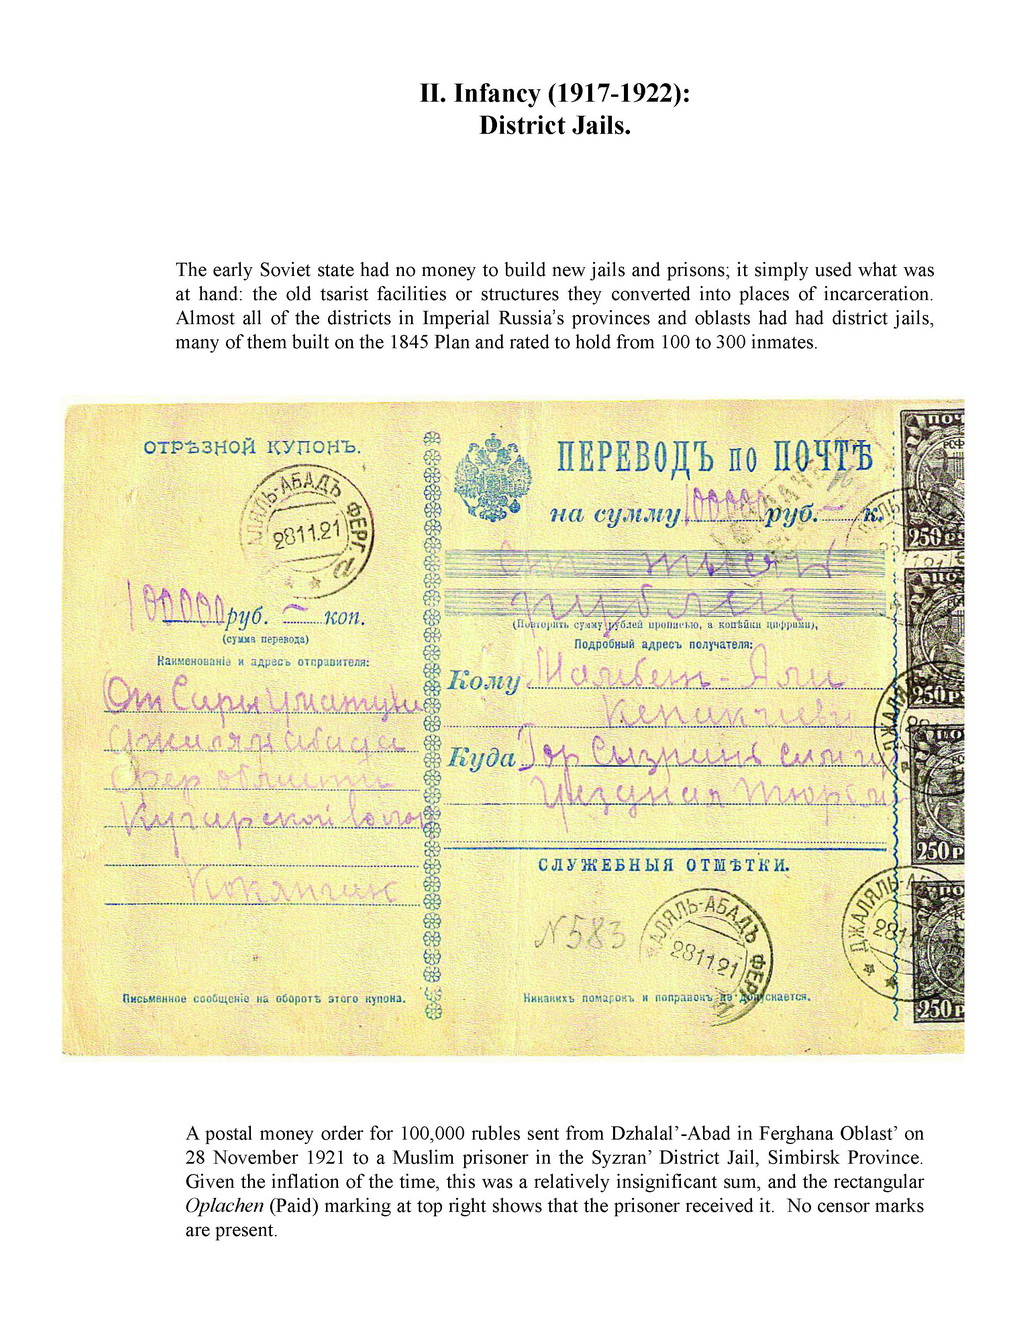 II. Infancy (1917-1922):
District Jails.
The early Soviet state had no money to build new jails and prisons; it simply used what was
at hand: the old tsarist facilities or structures they converted into places of incarceration.
Almost all of the districts in Imperial Russia's provinces and oblasts had had district jails,
many of them built on the 1845 Plan and rated to hold from 100 to 300 inmates.
ОТРѢЗНОЙ КУПОНЪ.
ДЖАЛЯЛЬ-АБАДЪ ФЕРГ.
28 11.21
100000 руб. — коп.
(сумма перевода)
Наименованіе и адресъ отправителя:
От
Письменное сообщеніе на оборотѣ этого купона.
ПЕРЕВОДЪ по ПОЧТѢ
на сумму 100000 руб. — к.
Сто тысяч
рублей
(Повторить сумму рублей прописью, а копѣйки цифрами),
Подробный адресъ получателя:
Кому Мамбет-Али
Куда Гор Сызрань
Уездная
СЛУЖЕБНЫЯ ОТМѢТКИ.
N 583
АЛЯЛЬ-АБАДЪ ФЕРГ.
28 11 21
Никакихъ помарокъ и поправокъ не допускается.
250 Р
250 Р
250 Р
250 Р
ДЖАЛЯЛЬ-А
A postal money order for 100,000 rubles sent from Dzhalal'-Abad in Ferghana Oblast' on
28 November 1921 to a Muslim prisoner in the Syzran' District Jail, Simbirsk Province.
Given the inflation of the time, this was a relatively insignificant sum, and the rectangular
Oplachen (Paid) marking at top right shows that the prisoner received it. No censor marks
are present.